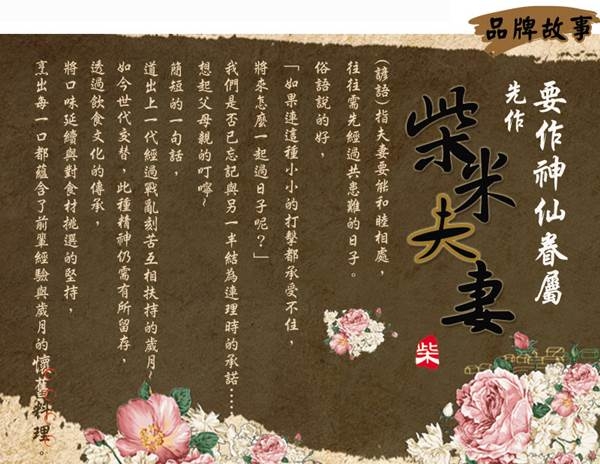 品牌故事
要作神仙眷屬
先作
柴米夫妻
柴
(諺語)指夫妻要能和睦相處，
往往需先經過共患難的日子。
俗語說的好，
「如果連這種小小的打擊都承受不住，
將來怎麼一起過日子呢？」
我們是否已忘記與另一半結為連理時的承諾……
想起父母親的叮嚀~
簡短的一句話，
道出上一代經過戰亂刻苦互相扶持的歲月~
如今世代交替，此種精神仍需有所留存，
透過飲食文化的傳承，
將口味延續與對食材挑選的堅持，
烹出每一口都蘊含了前輩經驗與歲月的懷舊料理。